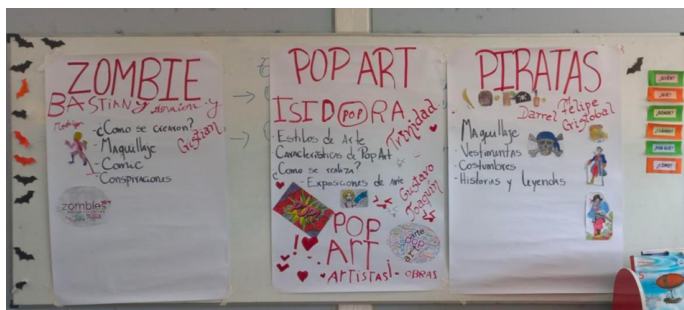 ZOMBIE
BASTIAN y
Rodrigo
Cristian
-¿Como se crearon?
- Maquillaje
- Comic
- Conspiraciones
zombies
POP ART
ISIDORA
POP
Trinidad
- Estilos de Arte
Caracteristicas de Pop Art
¿Como se realiza?
- Exposiciones de Arte
Gustavo
Joaquin
POP
ART
- ARTISTAS - OBRAS
arte
PIRATAS
Darrel
Felipe
Cristobal
Maquillaje
Vestimentas
Costumbres
- Historias y leyendas